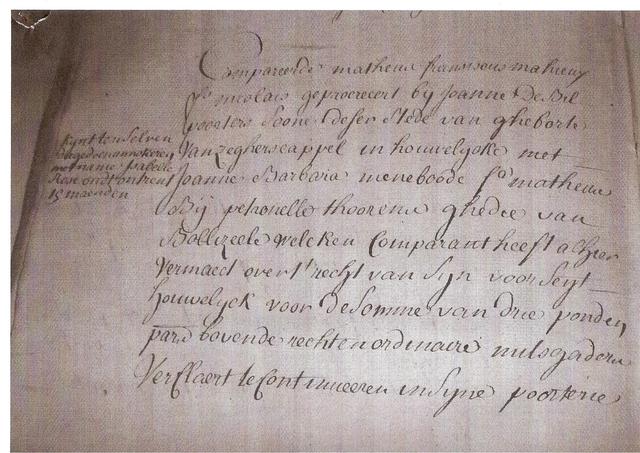 Compareerde matheus fransoois mahieux
fs nicolais geprocreeert by Joanne De Bil
poorters soone deser stede van gheborte
van zegherscappel in houwelycke met
Joanne Barbara meneboode fa matheus
Bij petronelle thoorene ghedee van
Bollezeele welcken Comparant heeft alhier
vermaect over t recht van syn voorseyt
houwelyck voor de somme van drie ponden
pars bovende rechten ordinaire mitsgaders
verclaert te Continueeren in syne poorterie
kynt ten selven
met name
Rose oudt ontrent
15 maenden